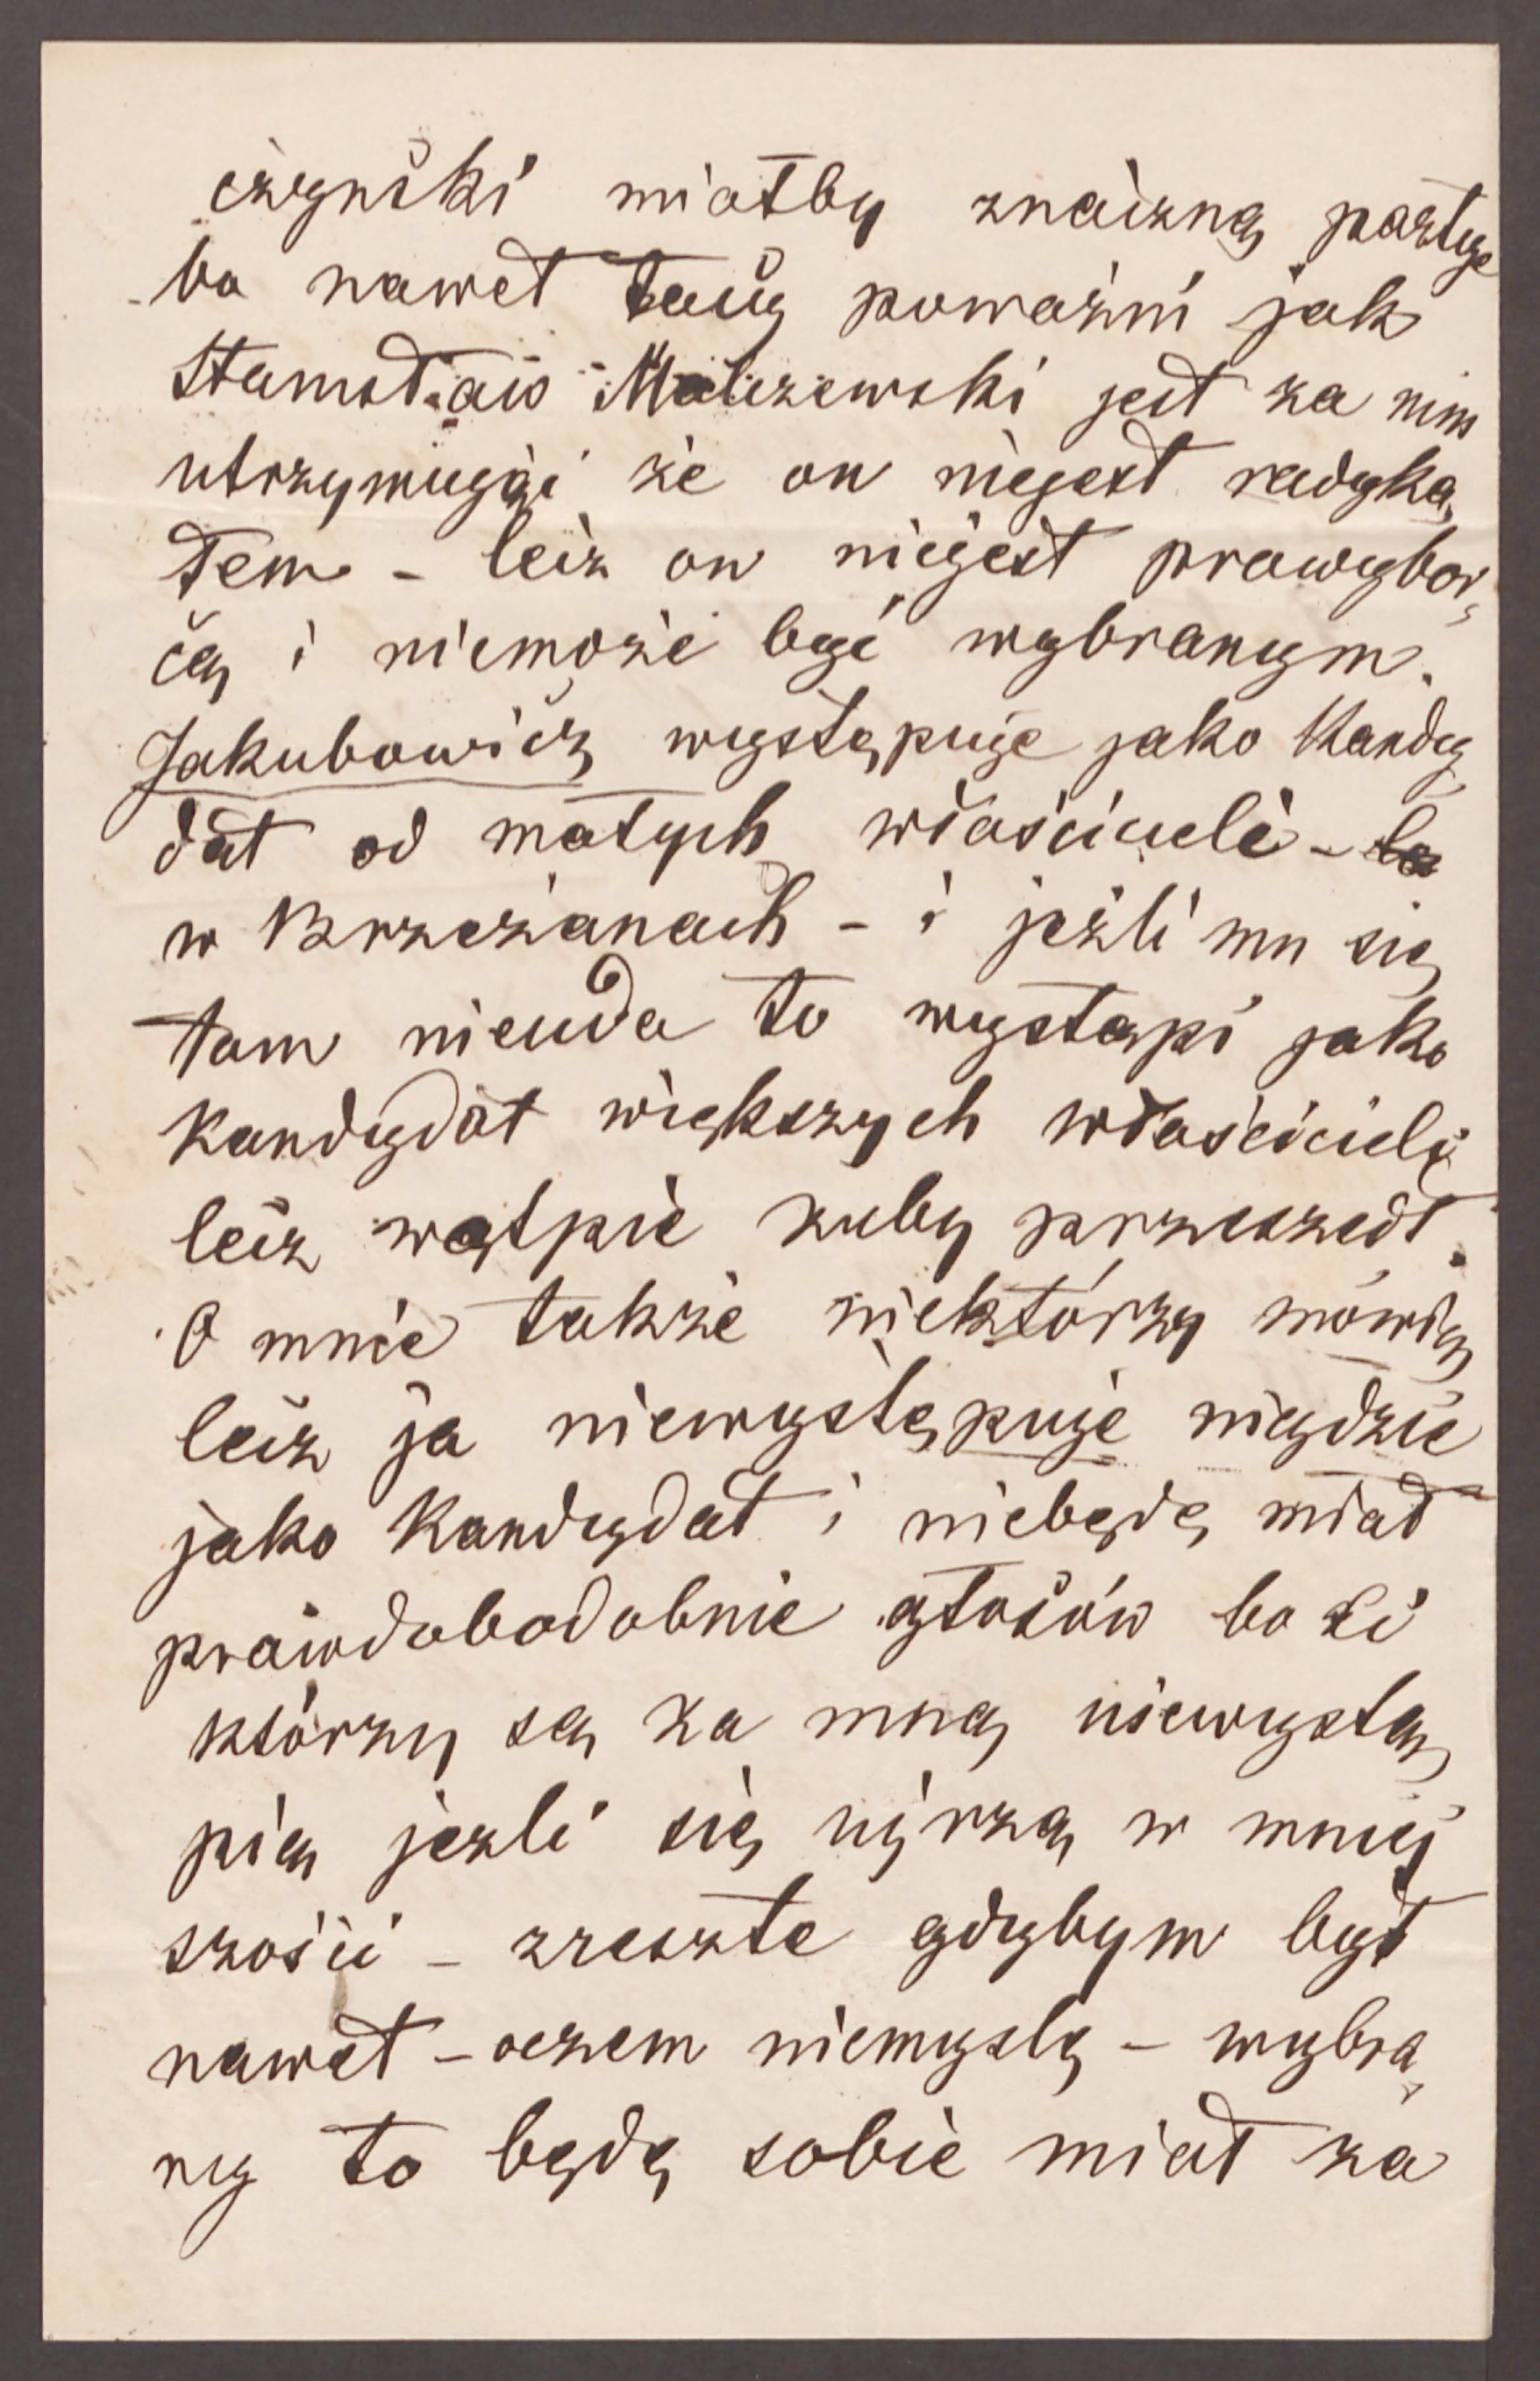 czyński miałby znaczną partye
bo nawet tacy poważni jak
Stanisław Malczewski jest za nim
utrzymując że on niejest radyka,
łem – lecz on niejest prawybor,
cą i niemoże być wybranym.
Jakubowicz występuje jako Kandy
dat od małych właścicieli –
w Brzeżanach – i jeżli mu się
tam nieuda to wystąpi jako
Kandydat większych właścicieli
lecz wątpie żeby przeszedł.
O mnie także niektórzy mówią
lecz ja niewystępuje nigdzie
jako Kandydat i niebędę miał
prawdobodobnie głosów bo ci
którzy są za mną niewystą,
pią jeżli się ujrzą w mniej
szości – zreszte gdybym był
nawet – oczem niemyslę – wybra,
ny to będę sobie miał za